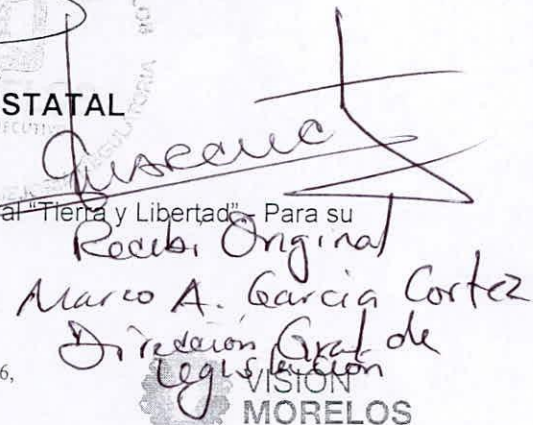 STATAL
al "Tierra y Libertad".- Para su
Recibi Original
Marco A. Garcia Cortez
Dirección Gral. de
Legislación
6,
VISIÓN
MORELOS